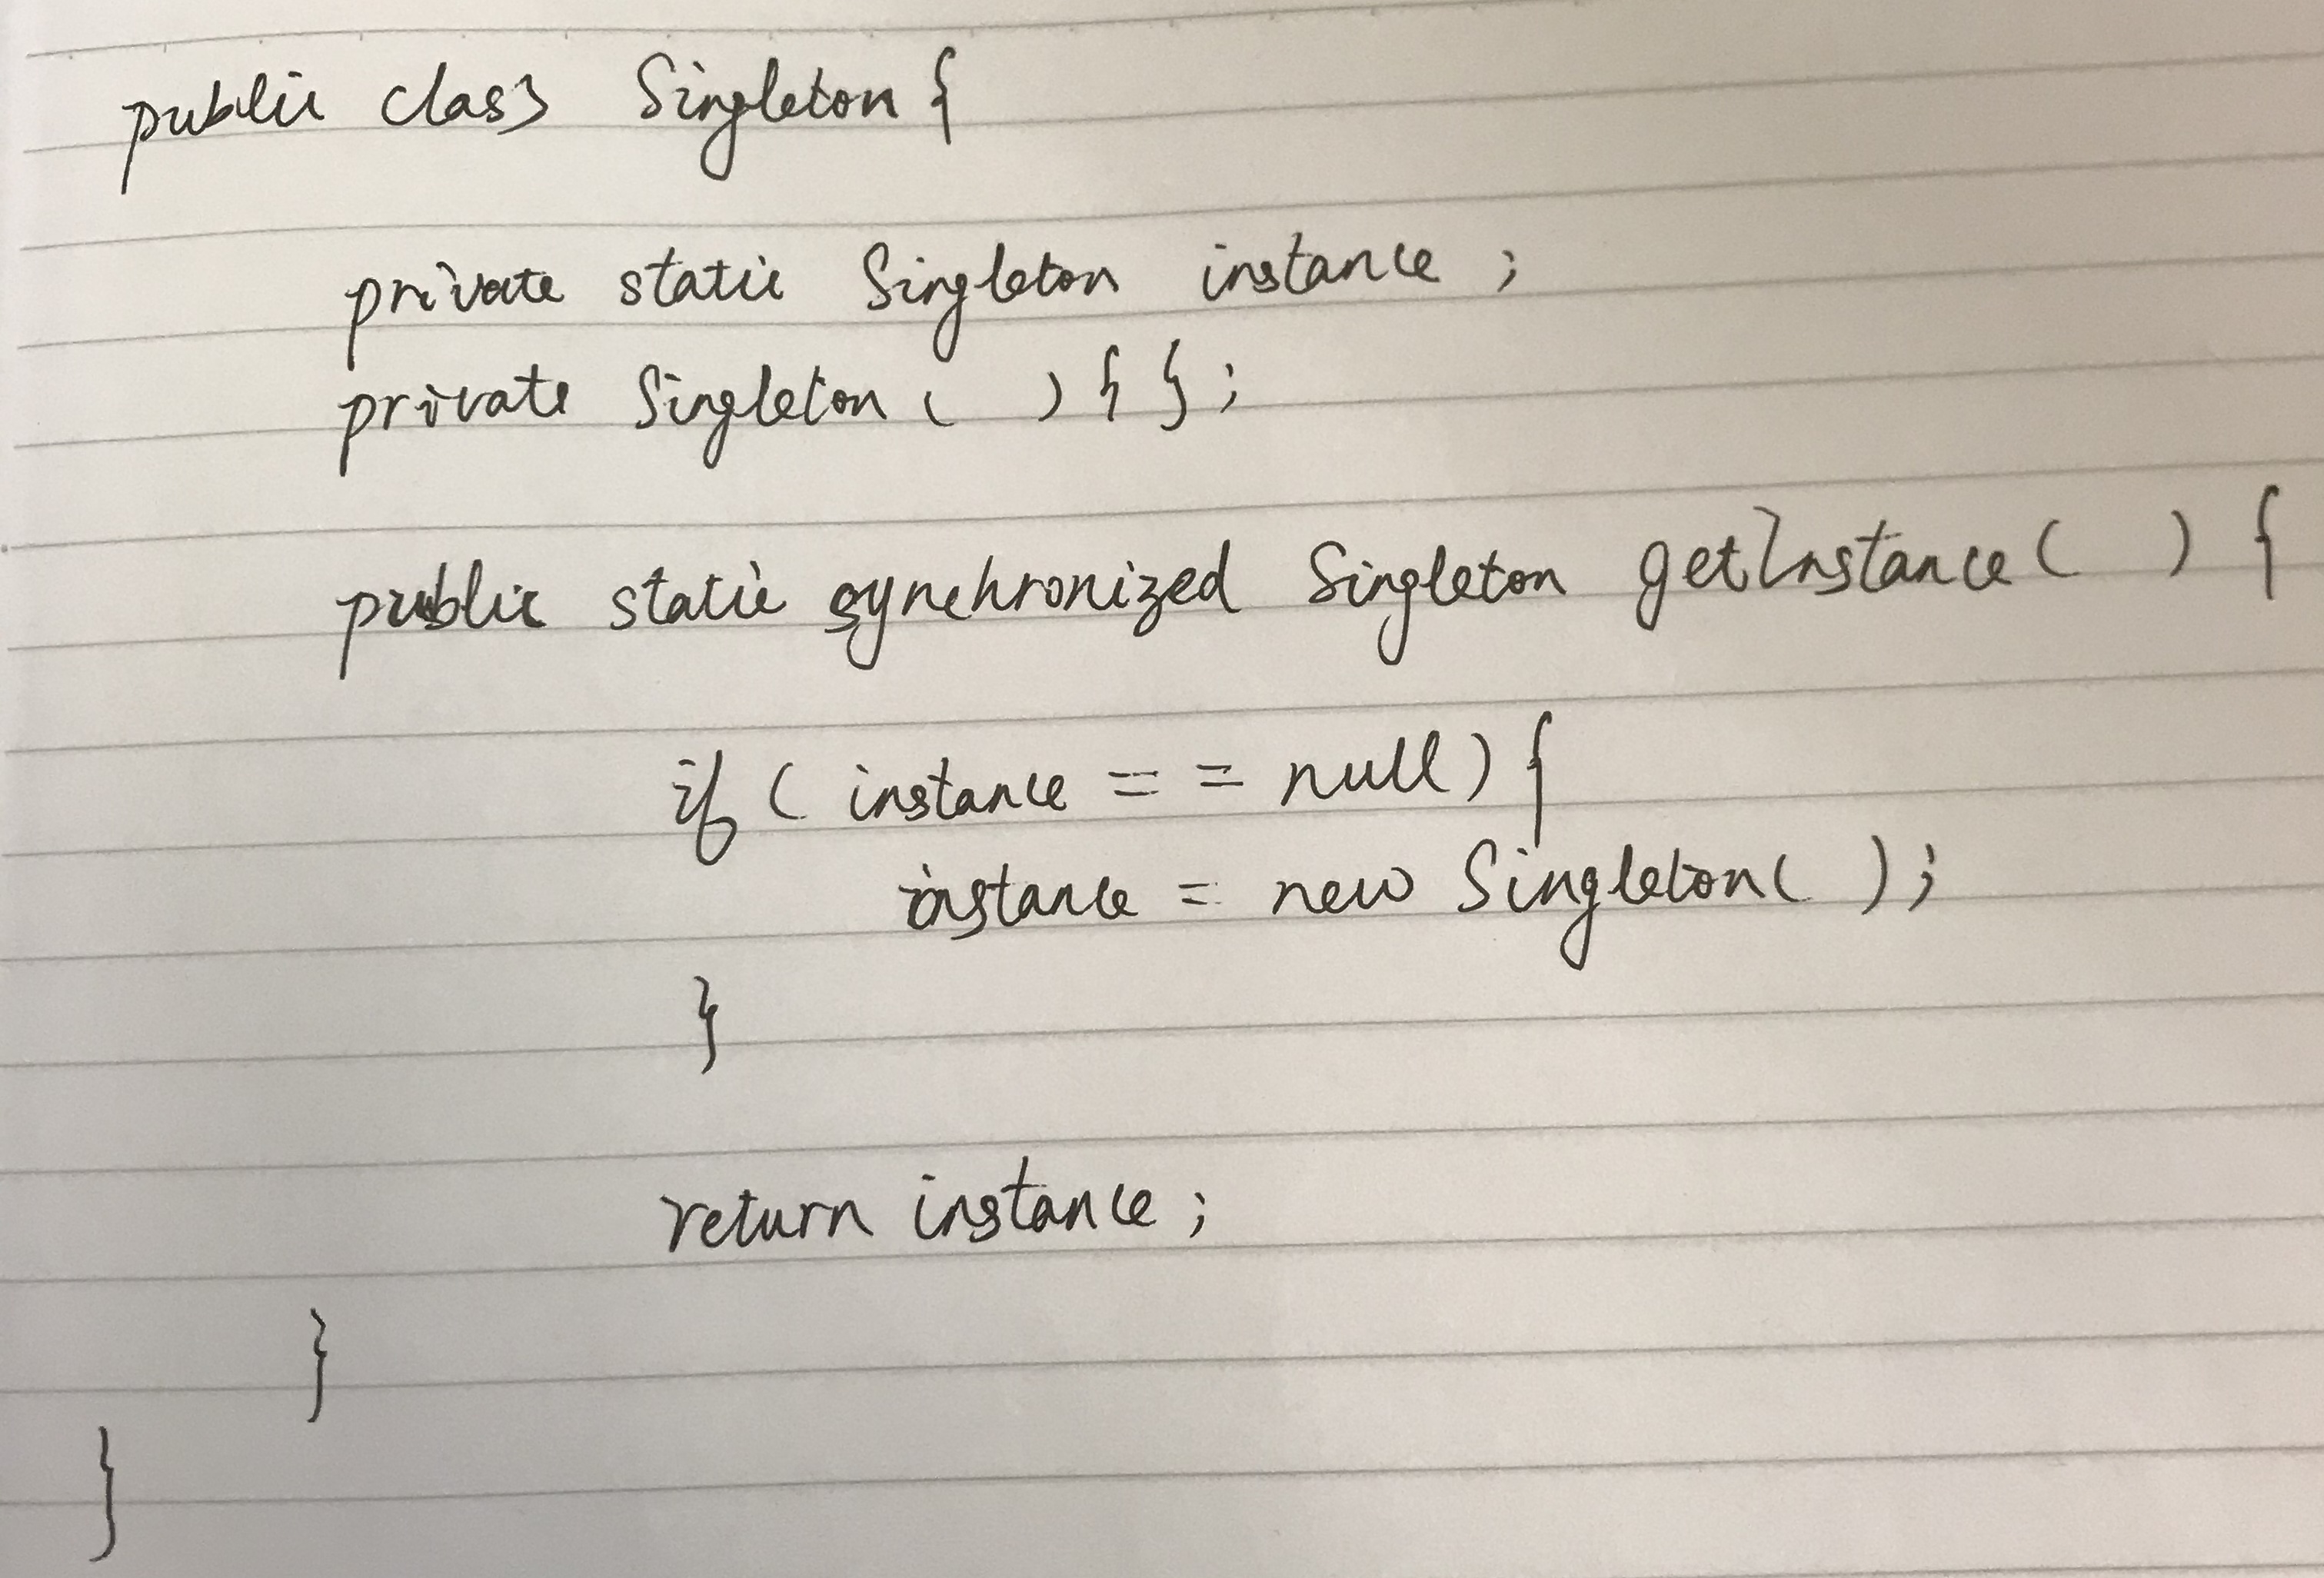 public class Singleton {
private static Singleton instance ;
private Singleton ( ) { } ;
public static synchronized Singleton getInstance ( ) {
if ( instance = = null ) {
instance = new Singleton ( ) ;
}
return instance ;
}
}